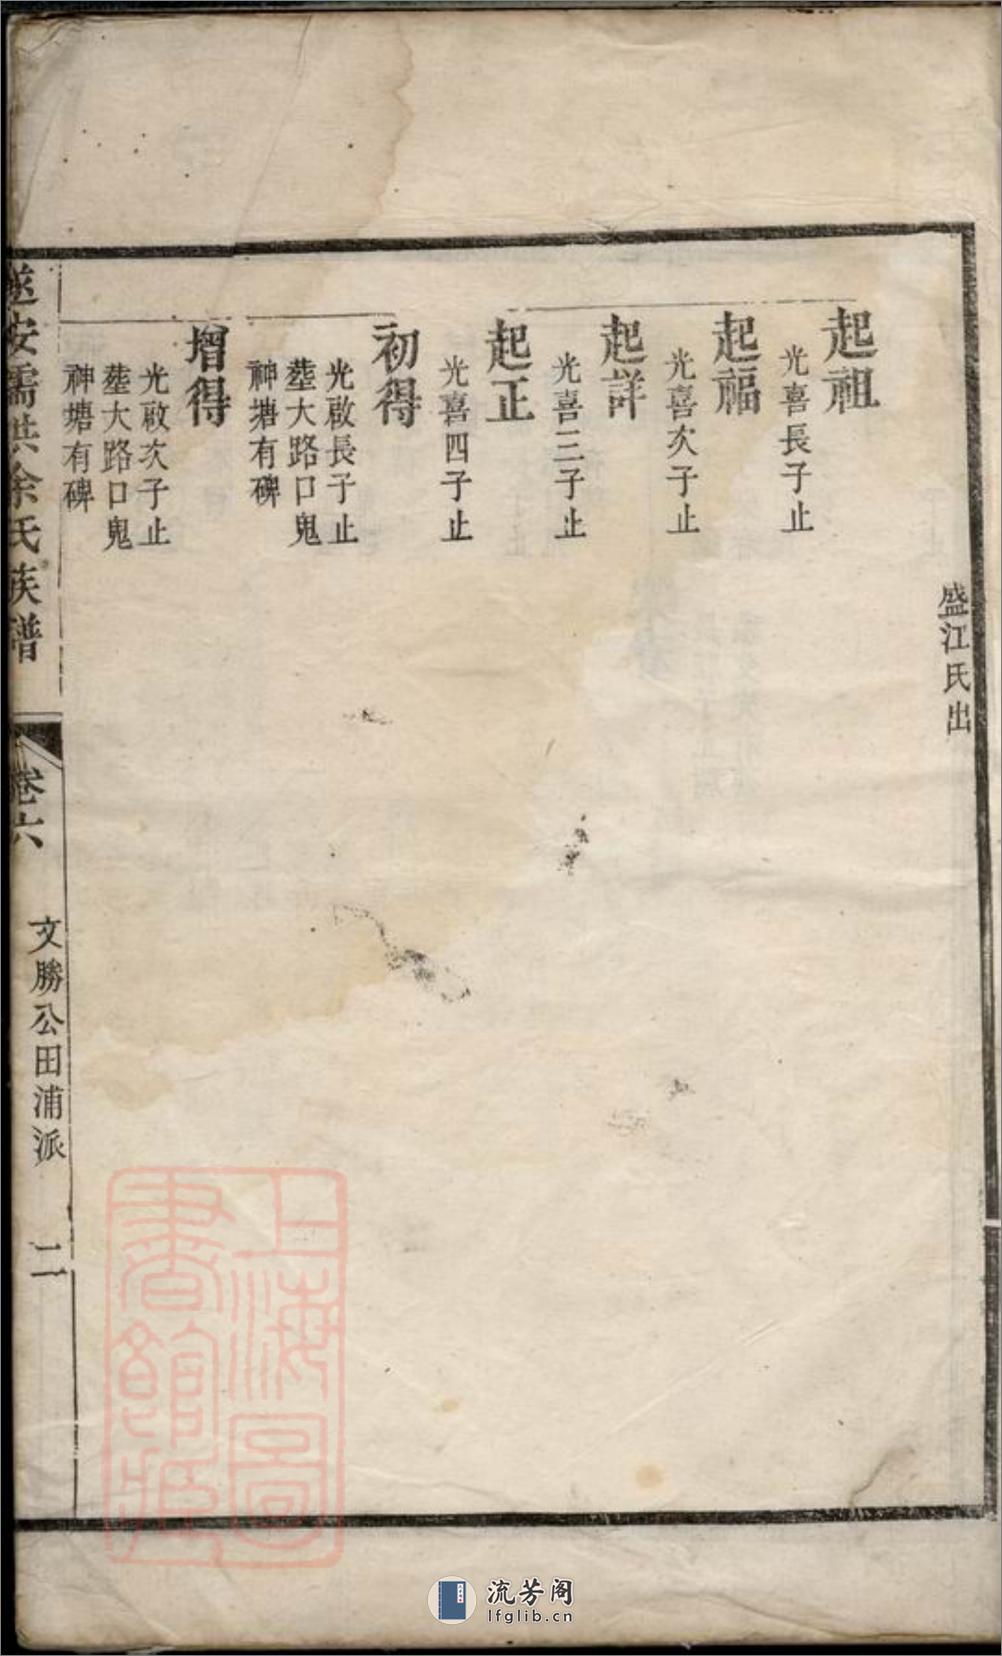 盛江氏出
起祖
光喜長子止
起福
光喜次子止
起詳
光喜三子止
起正
光喜四子止
初得
光啟長子止
塟大路口鬼
神塘有碑
增得
光啟次子止
塟大路口鬼
神塘有碑
遂安儒洪余氏族譜
卷六
文勝公田浦派
二
上海圖
書館藏
流芳阁
lfglib.cn